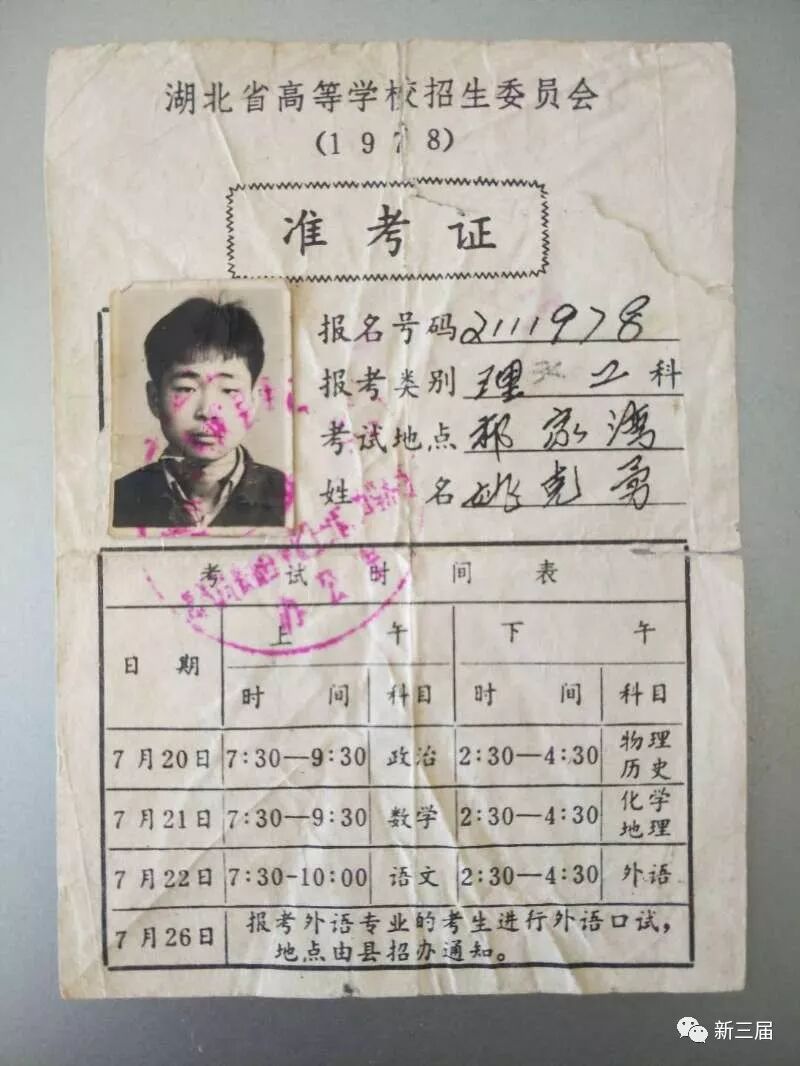 湖北省高等学校招生委员会
(1978)
准考证
报名号码 2111978
报考类别 理 工 科
考试地点 祁家湾
姓 名 姚克勇
考试时间表
日 期 上 午 下 午
时 间 科目 时 间 科目
7月20日 7:30—9:30 政治 2:30—4:30 物理 历史
7月21日 7:30—9:30 数学 2:30—4:30 化学 地理
7月22日 7:30-10:00 语文 2:30—4:30 外语
7月26日 报考外语专业的考生进行外语口试，
地点由县招办通知。
办公室
新三届